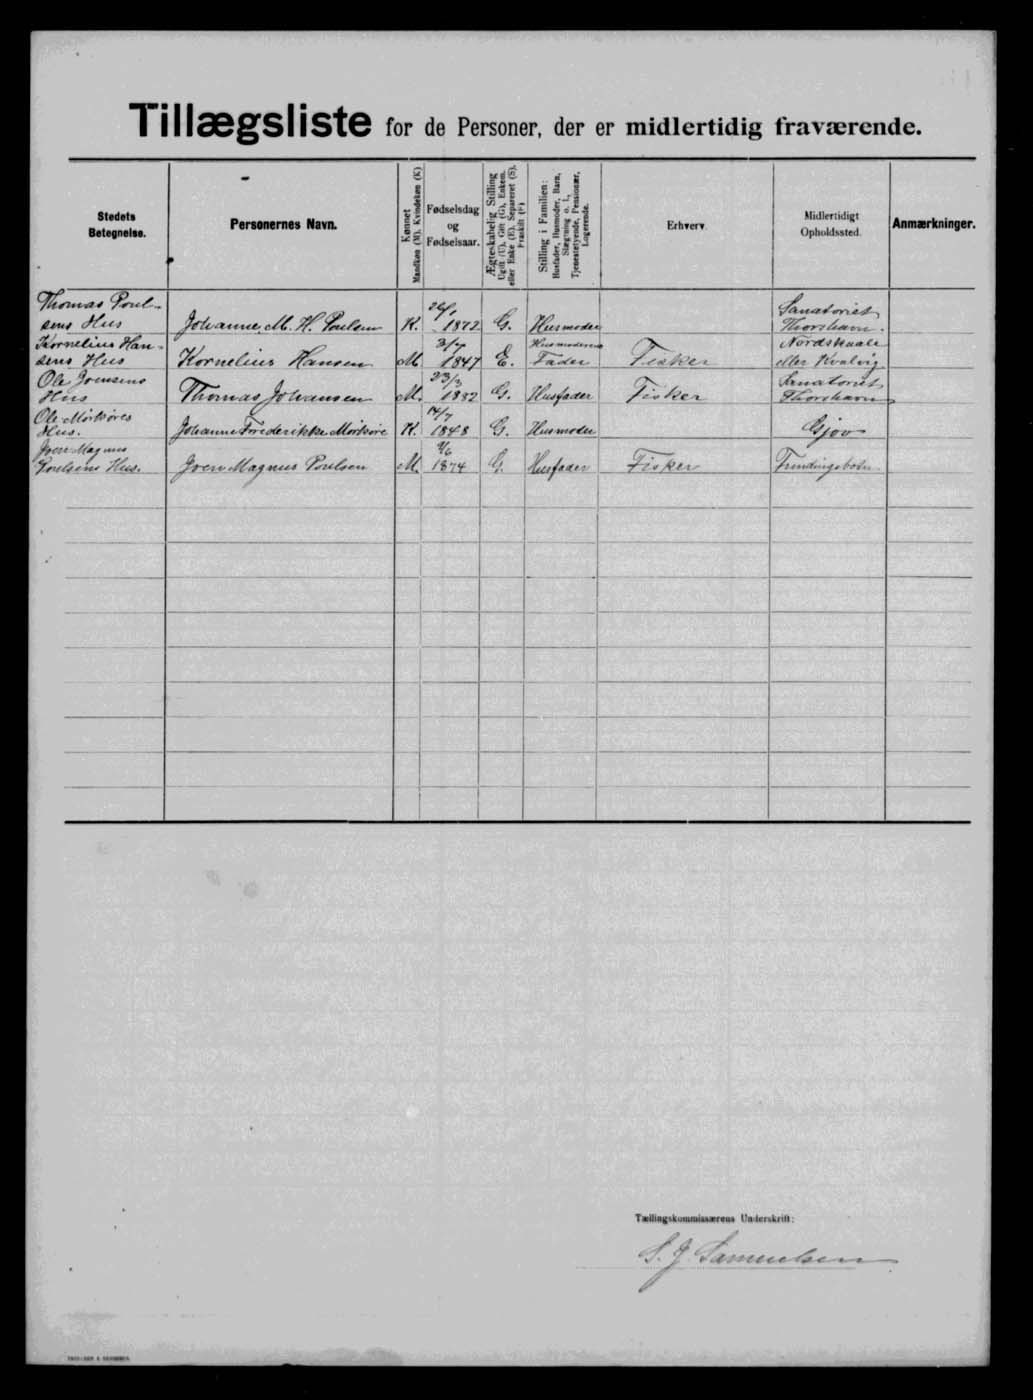 Tillægsliste for de Personer, der er midlertidig fraværende.
Stedets Betegnelse.
Personernes Navn.
Kønnet
Mandkøn (M), Kvindekøn (K)
Fødselsdag
og
Fødselsaar.
Ægteskabelig Stilling
Ugift (U), Gift (G), Enkem.
eller Enke (E), Separeret (S),
Fraskilt (F)
Stilling i Familien:
Husfader, Husmoder, Barn,
Slægtning o. l.,
Tjenestetyende, Pensionær,
Logerende.
Erhverv.
Midlertidigt
Opholdssted.
Anmærkninger.
Thomas Poul-
sens Hus Johanne M. H. Poulsen K. 26/1 1872 G. Husmoder Sanatoriet Thorshavn.
Kornelius Han-
sens Hus Kornelius Hansen M. 3/7 1847 E. Husmoderens Fader Fisker Nordskaale eller Kvalvig
Ole Joensens
Hus Thomas Johansen M. 23/3 1882 G. Husfader Fisker Sanatoriet Thorshavn
Ole Mørkøres
Hus. Johanne Frederikke Mørkøre K. 14/7 1848 G. Husmoder Gjov
Joen Magnus
Poulsens Hus. Joen Magnus Poulsen M. 9/6 1874 G. Husfader Fisker
Tællingskommissærens Underskrift:
S. J. Samuelsen